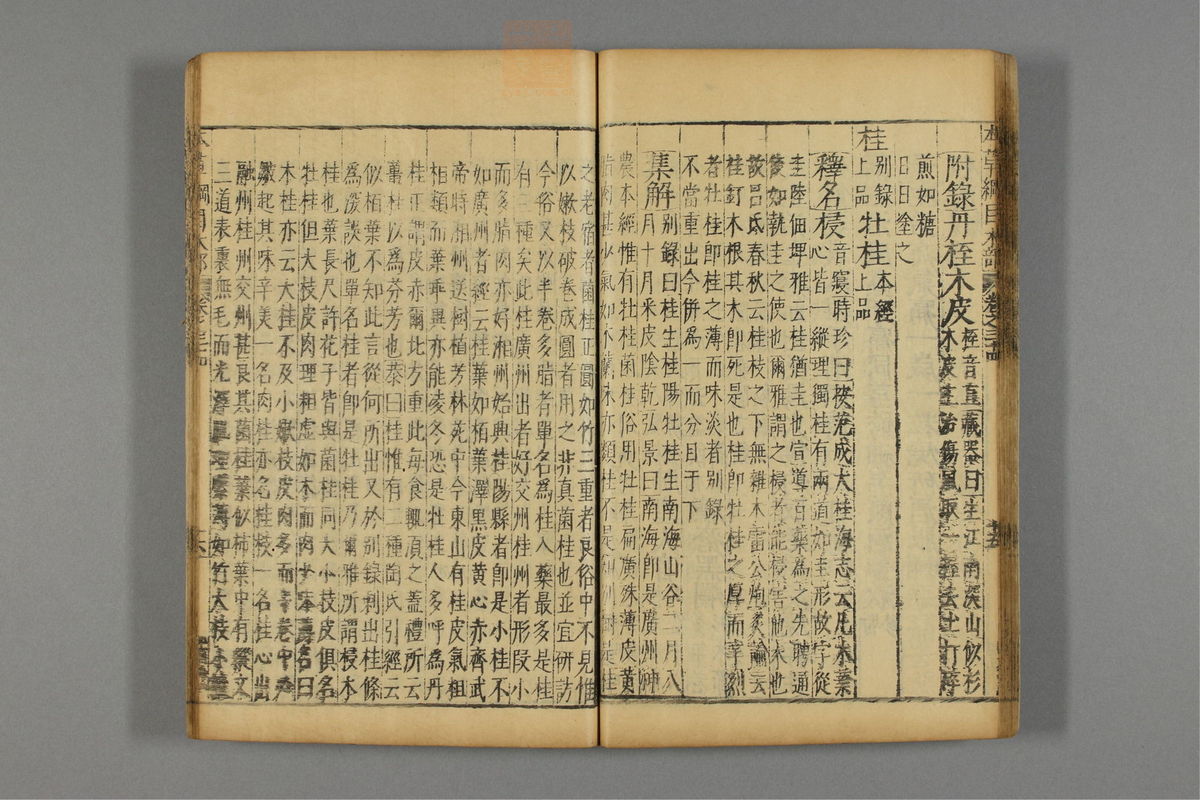 附錄丹桎木皮桎音直藏器曰生江南深山似杉
木皮主治癘瘍風取一
煎如糖
日日塗之
桂別錄上品牡桂本經上品
釋名梫音寢時珍曰按范成大桂海志云凡木葉
心皆一縱理獨桂有兩道如圭形故字從
圭陸佃埤雅云桂猶圭也宣導百藥為之先聘通
使如執圭之使也爾雅謂之梫者能侵害他木也
故呂氏春秋云桂枝之下無雜木雷公炮炙論云
桂釘木根其木即死是也桂即牡桂之厚而辛烈
者牡桂即桂之薄而味淡者別錄
不當重出今併為一而分目于下
集解別錄曰桂生桂陽牡桂生南海山谷二月八
月十月采皮陰乾弘景曰南海即是廣州神
農本經惟有牡桂菌桂俗用牡桂扁廣殊薄皮黃
脂肉甚少氣如木蘭味亦類桂不是知別樹是桂
之老宿者菌桂正圓如竹三重者良俗中不見惟
以嫩枝破卷成圓者用之非真菌桂也並宜研訪
今俗又以半卷多脂者單名為桂入藥最多是桂
有三種矣此桂廣州出者好交州桂州者形段小
而多脂肉亦好湘州始興桂陽縣者即是小桂不
如廣州者經云桂葉如栢葉澤黑皮黃心赤齊武
帝時湘州送樹植芳林苑中今東山有桂皮氣粗
相類而葉乖異亦能凌冬恐是牡桂人多呼為丹
桂正謂皮赤爾北方重此每食輒須之蓋禮所云
薑桂以為芬芳也恭曰桂惟有二種陶氏引經云
似栢葉不知此言從何所出又於別錄剩出桂條
為深誤也單名桂者即是牡桂乃爾雅所謂梫木
桂也葉長尺許花子皆與菌桂同大小枝皮俱名
牡桂但大枝皮肉理粗虛如木而肉少味薄名曰
木桂亦云大桂不及小嫩枝皮肉多而半卷中必
皺起其味辛美一名肉桂亦名桂枝一名桂心出
融州桂州交州甚良其菌桂葉似柿葉中有縱文
三道表裏無毛而光澤
如竹大枝